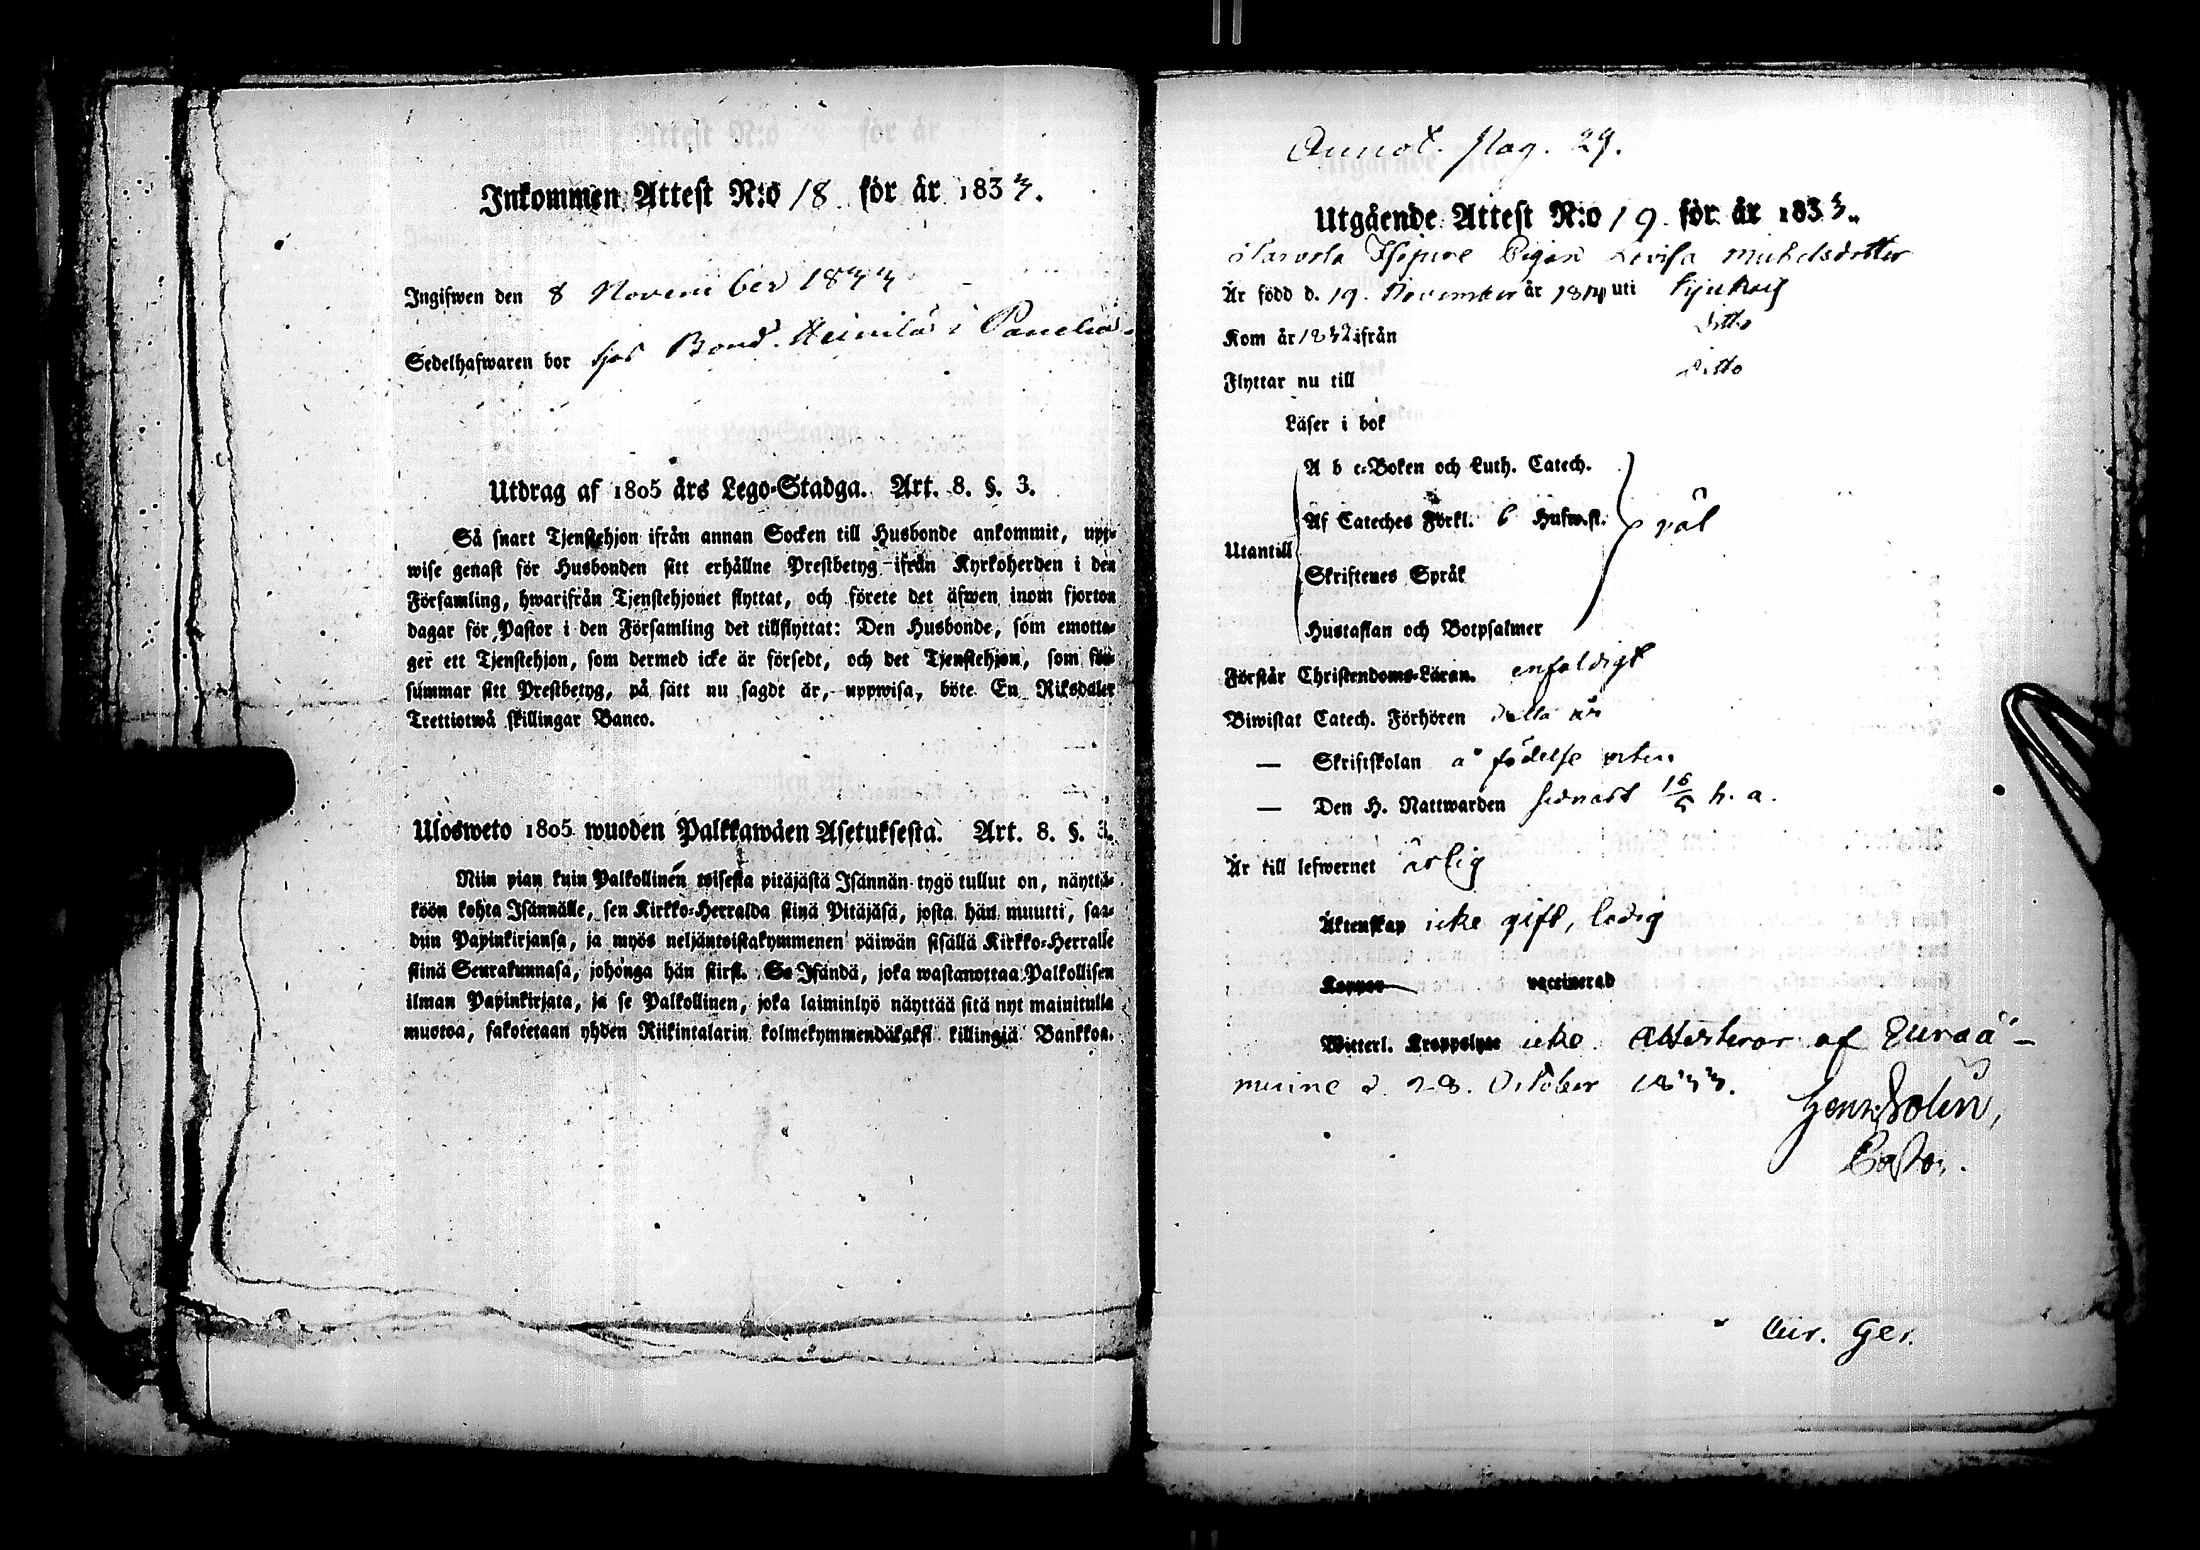 Inkommen Attest N:o 18 för år 1833.
Ingifwen den 8 November 1833
Sedelhafwaren bor hos Bond. Heinilä i Panelia.
Utdrag af 1805 års Lego-Stadga. Art. 8. §. 3.
Så snart Tjenstehjon ifrån annan Socken till Husbonde ankommit, upp-
wise genast för Husbonden sitt erhållne Prestbetyg ifrån Kyrkoherden i den
Församling, hwarifrån Tjenstehjonet flyttat, och förete det äfwen inom fjorton
dagar för Pastor i den Församling det tillflyttat: Den Husbonde, som emotta-
ger ett Tjenstehjon, som dermed icke är försedt, och det Tjenstehjon, som för-
summar sitt Prestbetyg, på sätt nu sagdt är, uppwisa, böte En Riksdaler
Trettiotwå skillingar Banco.
Ulosweto 1805 wuoden Palkkawäen Asetuksesta. Art. 8. §. 3.
Niin pian kuin Palkollinen toisesta pitäjästä Isännän tygö tullut on, näyttä-
köön kohta Isännälle, sen Kirkko-Herralda siinä Pitäjäsä, josta hän muutti, saa-
dun Papinkirjansa, ja myös neljäntoistakymmenen päiwän sisällä Kirkko-Herralle
siinä Seurakunnasa, johonga hän siirsi. Se Isändä, joka wastanottaa Palkollisen
ilman Papinkirjata, ja se Palkollinen, joka laiminlyö näyttää sitä nyt mainitulla
muotoa, sakotetaan yhden Riikintalarin kolmekymmendäkaksi killingiä Bankkoa.
Annot. Pag. 29.
Utgående Attest N:o 19 för år 1833.
Pigan Lovisa Michelsdotter
Är född d. 19. November år 1814 uti
Kom år 1832 ifrån Ditto
Flyttar nu till Ditto
Läser i bok
A b c-Boken och Luth. Catech.
Af Cateches Förkl. 6 Hufwst. väl
Utantill
Skriftenes Språk
Hustaflan och Botpsalmer
Förstår Christendoms-Läran. enfaldigt
Biwistat Catech. Förhören detta år
— Skriftskolan å födelse orten
— Den H. Nattwarden sednast 16/5 h. a.
Är till lefwernet ärlig
Äktenskap icke gift, ledig
Koppor vaccinerad
Witterl. Kroppslyte icke. Attesterar af Euraå-
minne d. 28. October 1833.
Henr. Solin,
Pastor.
Cur. Ger.